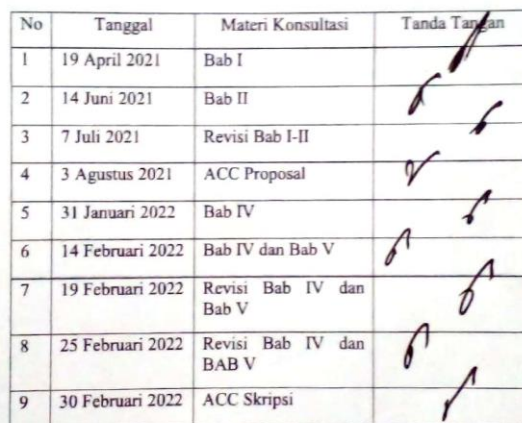 No Tanggal Materi Konsultasi Tanda Tangan
1 19 April 2021 Bab I
2 14 Juni 2021 Bab II
3 7 Juli 2021 Revisi Bab I-II
4 3 Agustus 2021 ACC Proposal
5 31 Januari 2022 Bab IV
6 14 Februari 2022 Bab IV dan Bab V
7 19 Februari 2022 Revisi Bab IV dan
Bab V
8 25 Februari 2022 Revisi Bab IV dan
BAB V
9 30 Februari 2022 ACC Skripsi